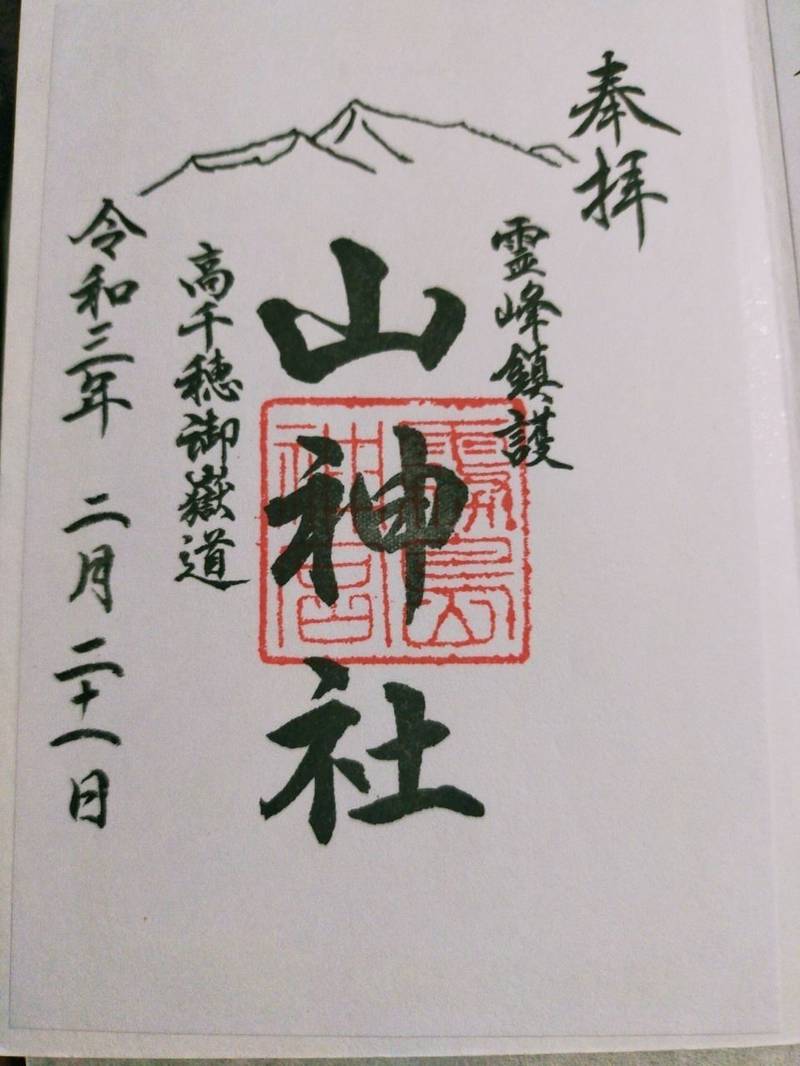 奉拝
霊峰鎮護
山神社
霧島
神宮
高千穂御嶽道
令和三年 二月 二十一日